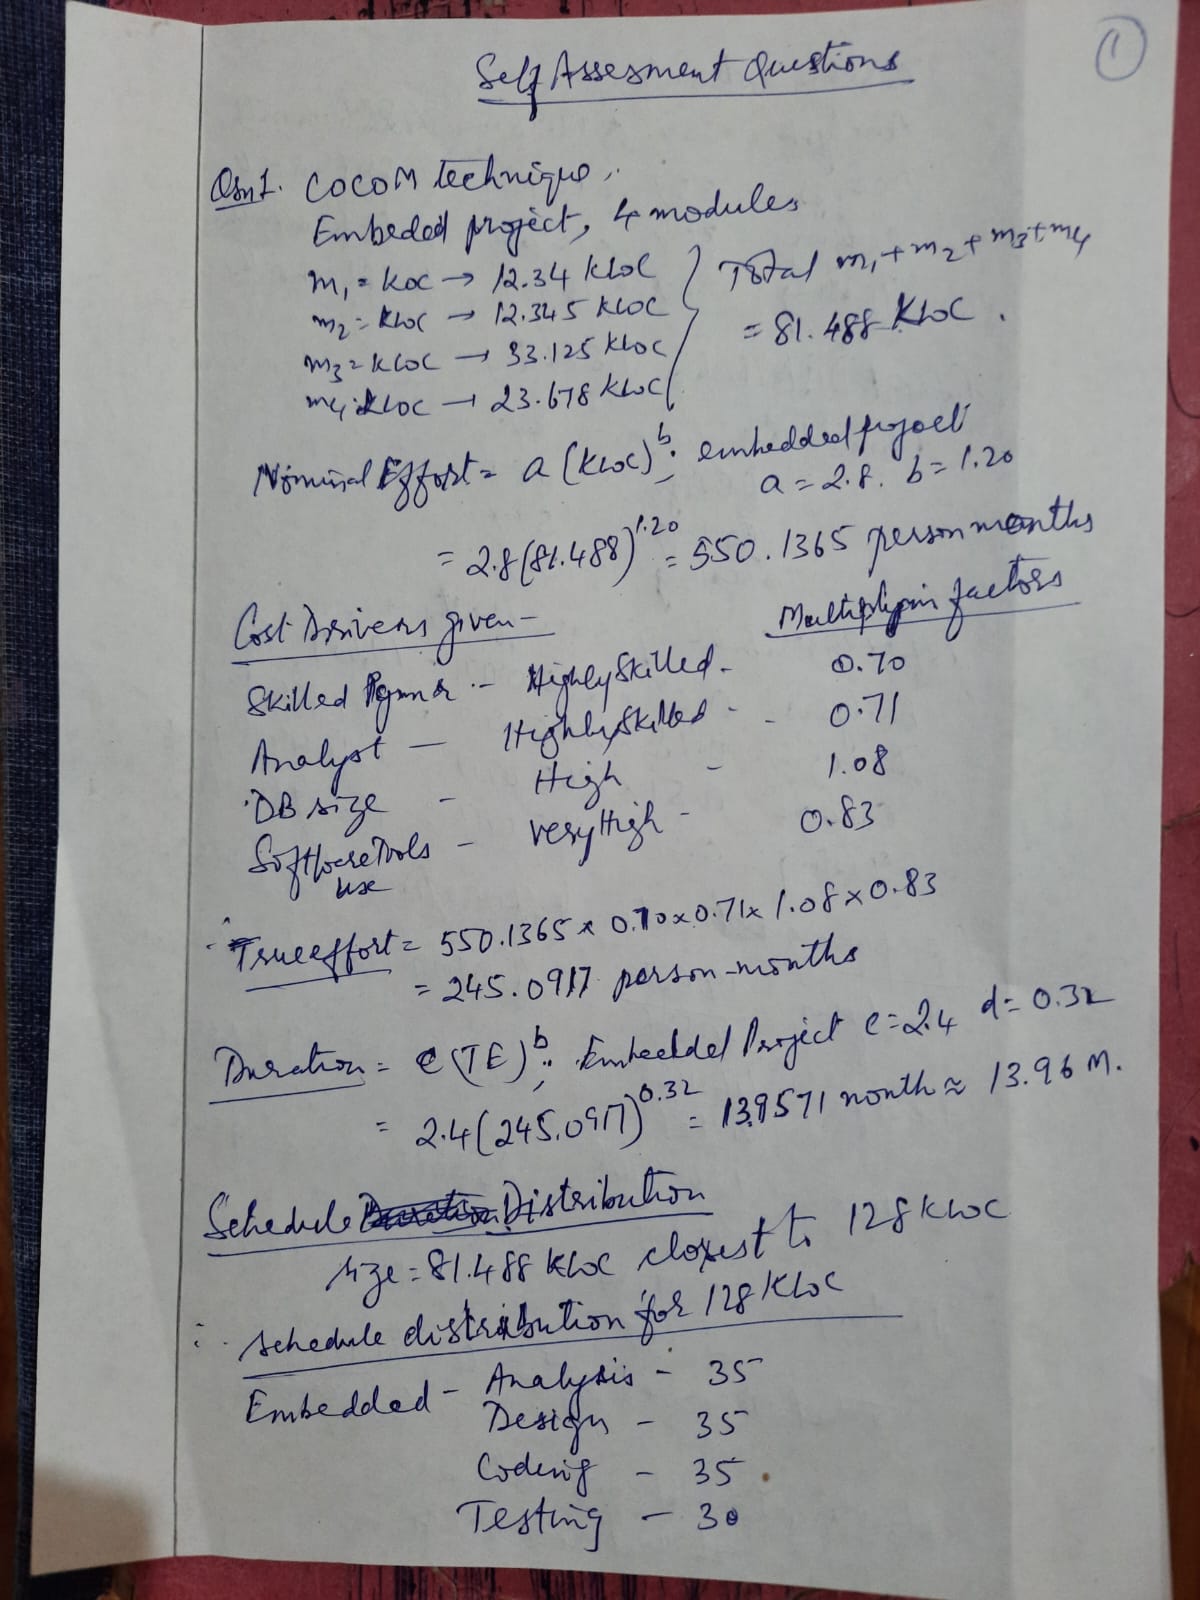 1
Self Assesment Questions
Qsn1. COCOM technique,.
Embeded project, 4 modules
m1 = KOC → 12.34 KLOC
m2 = KLOC → 12.345 KLOC
m3 = KLOC → 33.125 KLOC
m4 = KLOC → 23.678 KLOC
Total m1 + m2 + m3 + m4
= 81.488 KLOC.
Nominal Effort = a (KLOC)^b; embedded project
a = 2.8. b = 1.20
= 2.8(81.488)^1.20 = 550.1365 person months
Cost Drivers given – Multiplyin factors
Skilled - Highly Skilled - 0.70
Analyst - Highly Skilled - 0.71
DB size - High - 1.08
Software Tools - Very High - 0.83
use
∴ True effort = 550.1365 x 0.70 x 0.71 x 1.08 x 0.83
= 245.0917 person-months
Duration = C (TE)^b; Embedded Project C = 2.4 d = 0.32
= 2.4(245.0917)^0.32 = 13.9571 month ≈ 13.96 M.
Schedule Distribution
size = 81.488 KLOC closest to 128 KLOC
∴ schedule distribution for 128 KLOC
Embedded - Analysis - 35
Design - 35
Coding - 35
Testing - 30